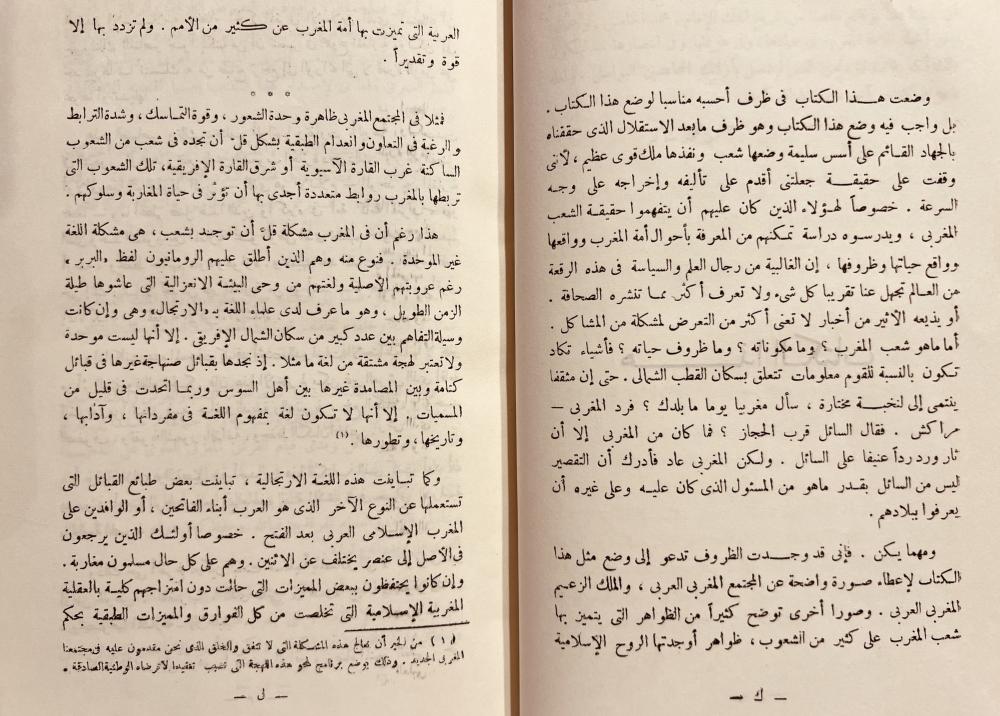 وضعت هـذا الكتاب فى ظرف أحسبه مناسبا لوضع هذا الكتاب .
بل واجب فيه وضع هذا الكتاب وهو ظرف مابعد الاستقلال الذى حققناه
بالجهاد القـائم على أسس سليمة وضعها شعب ونفذها ملك قوى عظيم ، لأنى
وقفت على حقيقـة جعلتنى أقدم على تأليفه وإخراجه على وجـه
السرعة . خصوصاً لهـؤلاء الذين كان عليهم أن يتفهموا حقيقـة الشعب
المغربى ، ويدرسوه دراسة تمكنهم من المعرفة بأحوال أمة المغرب وواقعها
وواقع حياتها وظروفها ، إن الغالبية من رجال العلم والسياسة فى هذه الرقعة
من العـالم تجهل عنا تقريبا كل شىء ولا تعرف أكثر ممـا تنشره الصحافة .
أو يذيعه الأثير من أخبار لا تعنى أكثر من التعرض لمشكلة من المشاكل .
أما ماهو شعب المغرب ؟ وما مكوناته ؟ وما ظروف حياته ؟ فأشياء تكاد
تـكون بالنسبة للقوم معلومات تتعلق بسكان القطب الشمالى . حتى إن مثقفا
ينتمى إلى لنخبـة مختارة ، سأل مغربيا يوما ما بلدك ؟ فرد المغربى —
مراكش . فقال السائل قرب الحجاز ؟ فما كان من المغربى إلا أن
ثار ورد رداً عنيفا على السائل . ولـكن المغربى عاد فأدرك أن التقصير
ليس من السائل بقـدر ماهو من المسئول الذى كان عليـه وعلى غيره أن
يعرفوا ببلادهم .
ومهما يـكن . فإنى قد وجـدت الظروف تدعو إلى وضع مثل هذا
الكتاب لإعطاء صـورة واضحة عن المجتمع المغربى العربى ، والملك الزعيم
المغربى العربى . وصورا أخرى توضح كثيراً من الظواهر التى يتميز بها
شعب المغرب على كثير من الشعوب ، ظواهر أوجدتها الروح الإسلامية
— ك —
العربية التى تميزت بها أمة المغرب عن كثير من الأمم . ولم تزدد بها إلا
قوة وتقديراً .
* * *
فمثلا فى المجتمع المغربى ظاهرة وحدة الشعور ، وقوة التماسك ، وشدة الترابط
والرغبة فى التعاون وانعدام الطبقية بشكل قل أن تجده فى شعب من الشعوب
الساكنة غرب القارة الآسيوية أو شرق القارة الإفريقية ، تلك الشعوب التى
تربطها بالمغرب روابط متعددة أجدى بها أن تؤثر فى حياة المغاربة وسلوكهم .
هذا رغم أن فى المغرب مشكلة قل أن توجـد بشعب ، هى مشكلة اللغة
غير الموحدة . فنوع منه وهم الذين أطلق عليهم الرومانيون لفظ «البربر»
رغم عروبتهم الأصلية ولغتهم من وحى البيئـة الانعزالية التى عاشوها طيلة
الزمن الطويل ، وهو ماعرف لدى علماء اللغة بـ «الارتجال» وهى وإن كانت
وسيلة التفاهم بين عدد كبير من سكان الشمال الإفريقى . إلا أنها ليست موحدة
ولا تعتبر لهجة مشتقة من لغة ما مثلا . إذ نجدها بقبائل صنهاجة غيرها فى قبائل
كتامة وبين المصامدة غيرها بين أهل السوس وربمـا اتحدت فى قليل من
المسميات . إلا أنها لا تـكون لغة بمفهوم اللغـة فى مفرداتها ، وآدابها ،
وتاريخها ، وتطورها . (١)
وكما تبـاينت هذه اللغـة الارتجالية ، تباينت بعض طبائع القبائل التى
تستعملها عن النوع الآخر الذى هو العرب أبناء الفاتحين ، أو الوافدين على
المغرب الإسلامى العربى بعد الفتح . خصوصا أولئـك الذين يرجعون
فى الأصل إلى عنصر يختلف عن الاثنين . وهم على كل حال مسلمون مغاربة .
وإن كانوا يحتفظون ببعض المميزات التى حالت دون امتزاجهم كلية بالعقلية
المغربية الإسـلامية التى تخلصت من كل الفوارق والمميزات الطبقية بحكم
(١) من الخير أن نعالج هذه المشـكلة التى لا تتفق والخلق الذى نحن مقدمون عليه فى مجتمعنا
المغربى الجديد . وذلك بوضع برنامج لمحو هذه اللهجة التى تصيب تعقيدا لا ترضاه الوطنية الصادقة .
— ل —